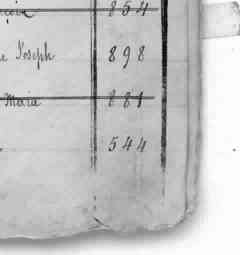 854
e Joseph 898
Maia 881
544